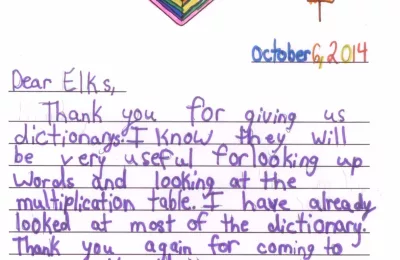 October 6, 2014
Dear Elks,
Thank you for giving us
dictionarys. I know they will
be very useful for looking up
words and looking at the
multiplication table. I have already
looked at most of the dictionary.
Thank you again for coming to